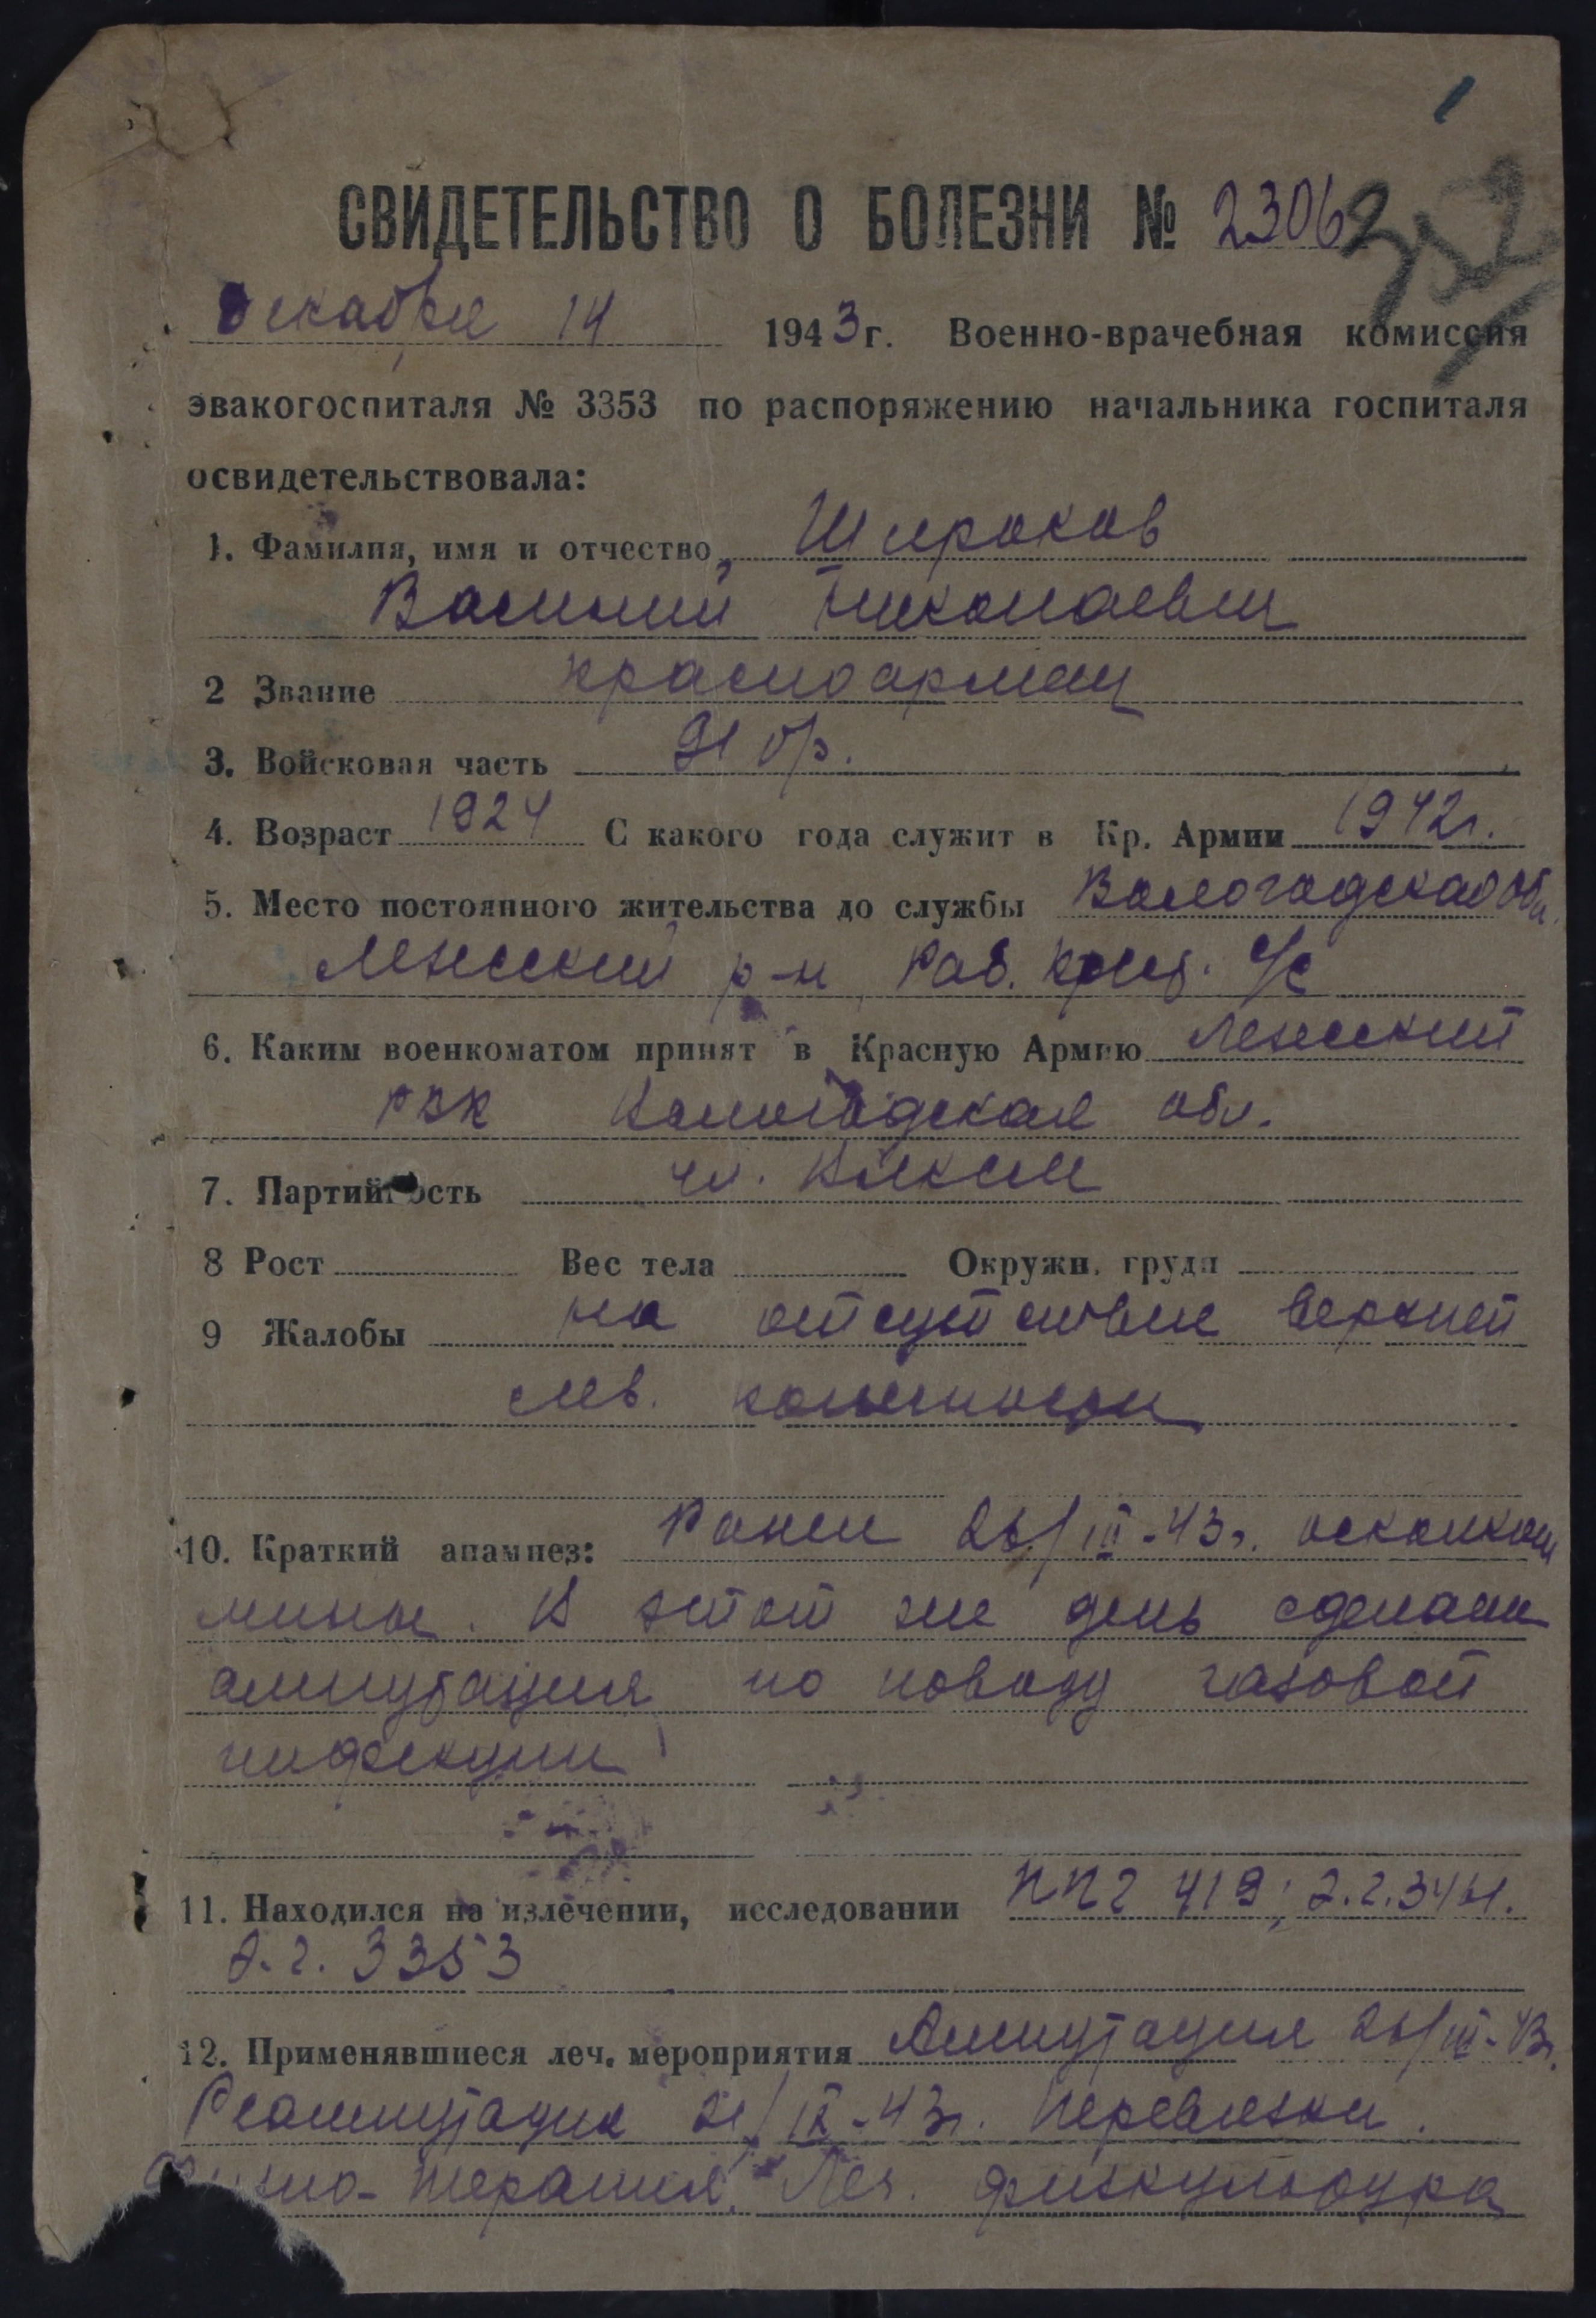 1
СВИДЕТЕЛЬСТВО О БОЛЕЗНИ № 2306
352
декабря 14 1943 г. Военно-врачебная комиссия
эвакогоспиталя № 3353 по распоряжению начальника госпиталя
освидетельствовала:
1. Фамилия, имя и отчество Широков
Василий Николаевич
2 Звание красноармеец
3. Войсковая часть 91 бр.
4. Возраст 1924 С какого года служит в Кр. Армии 1942 г.
5. Место постоянного жительства до службы Вологодская обл.
р-н Раб. Крест. с/с
6. Каким военкоматом принят в Красную Армию
РВК Вологодская обл.
7. Партийность чл. ВЛКСМ
8 Рост Вес тела Окружн. груди
9 Жалобы на отсутствие верхней
лев. конечности
10. Краткий анамнез: Ранен 26/III-43 г. осколком
мины. В этот же день сделана
ампутация по поводу газовой
инфекции
11. Находился на излечении, исследовании ППГ 419; Э.Г. 3441.
Э.Г. 3353
12. Применявшиеся леч. мероприятия Ампутация 26/III-43 г.
Реампутация 21/IX-43 г. Перевязки.
Физио-терапия. Леч. физкультура